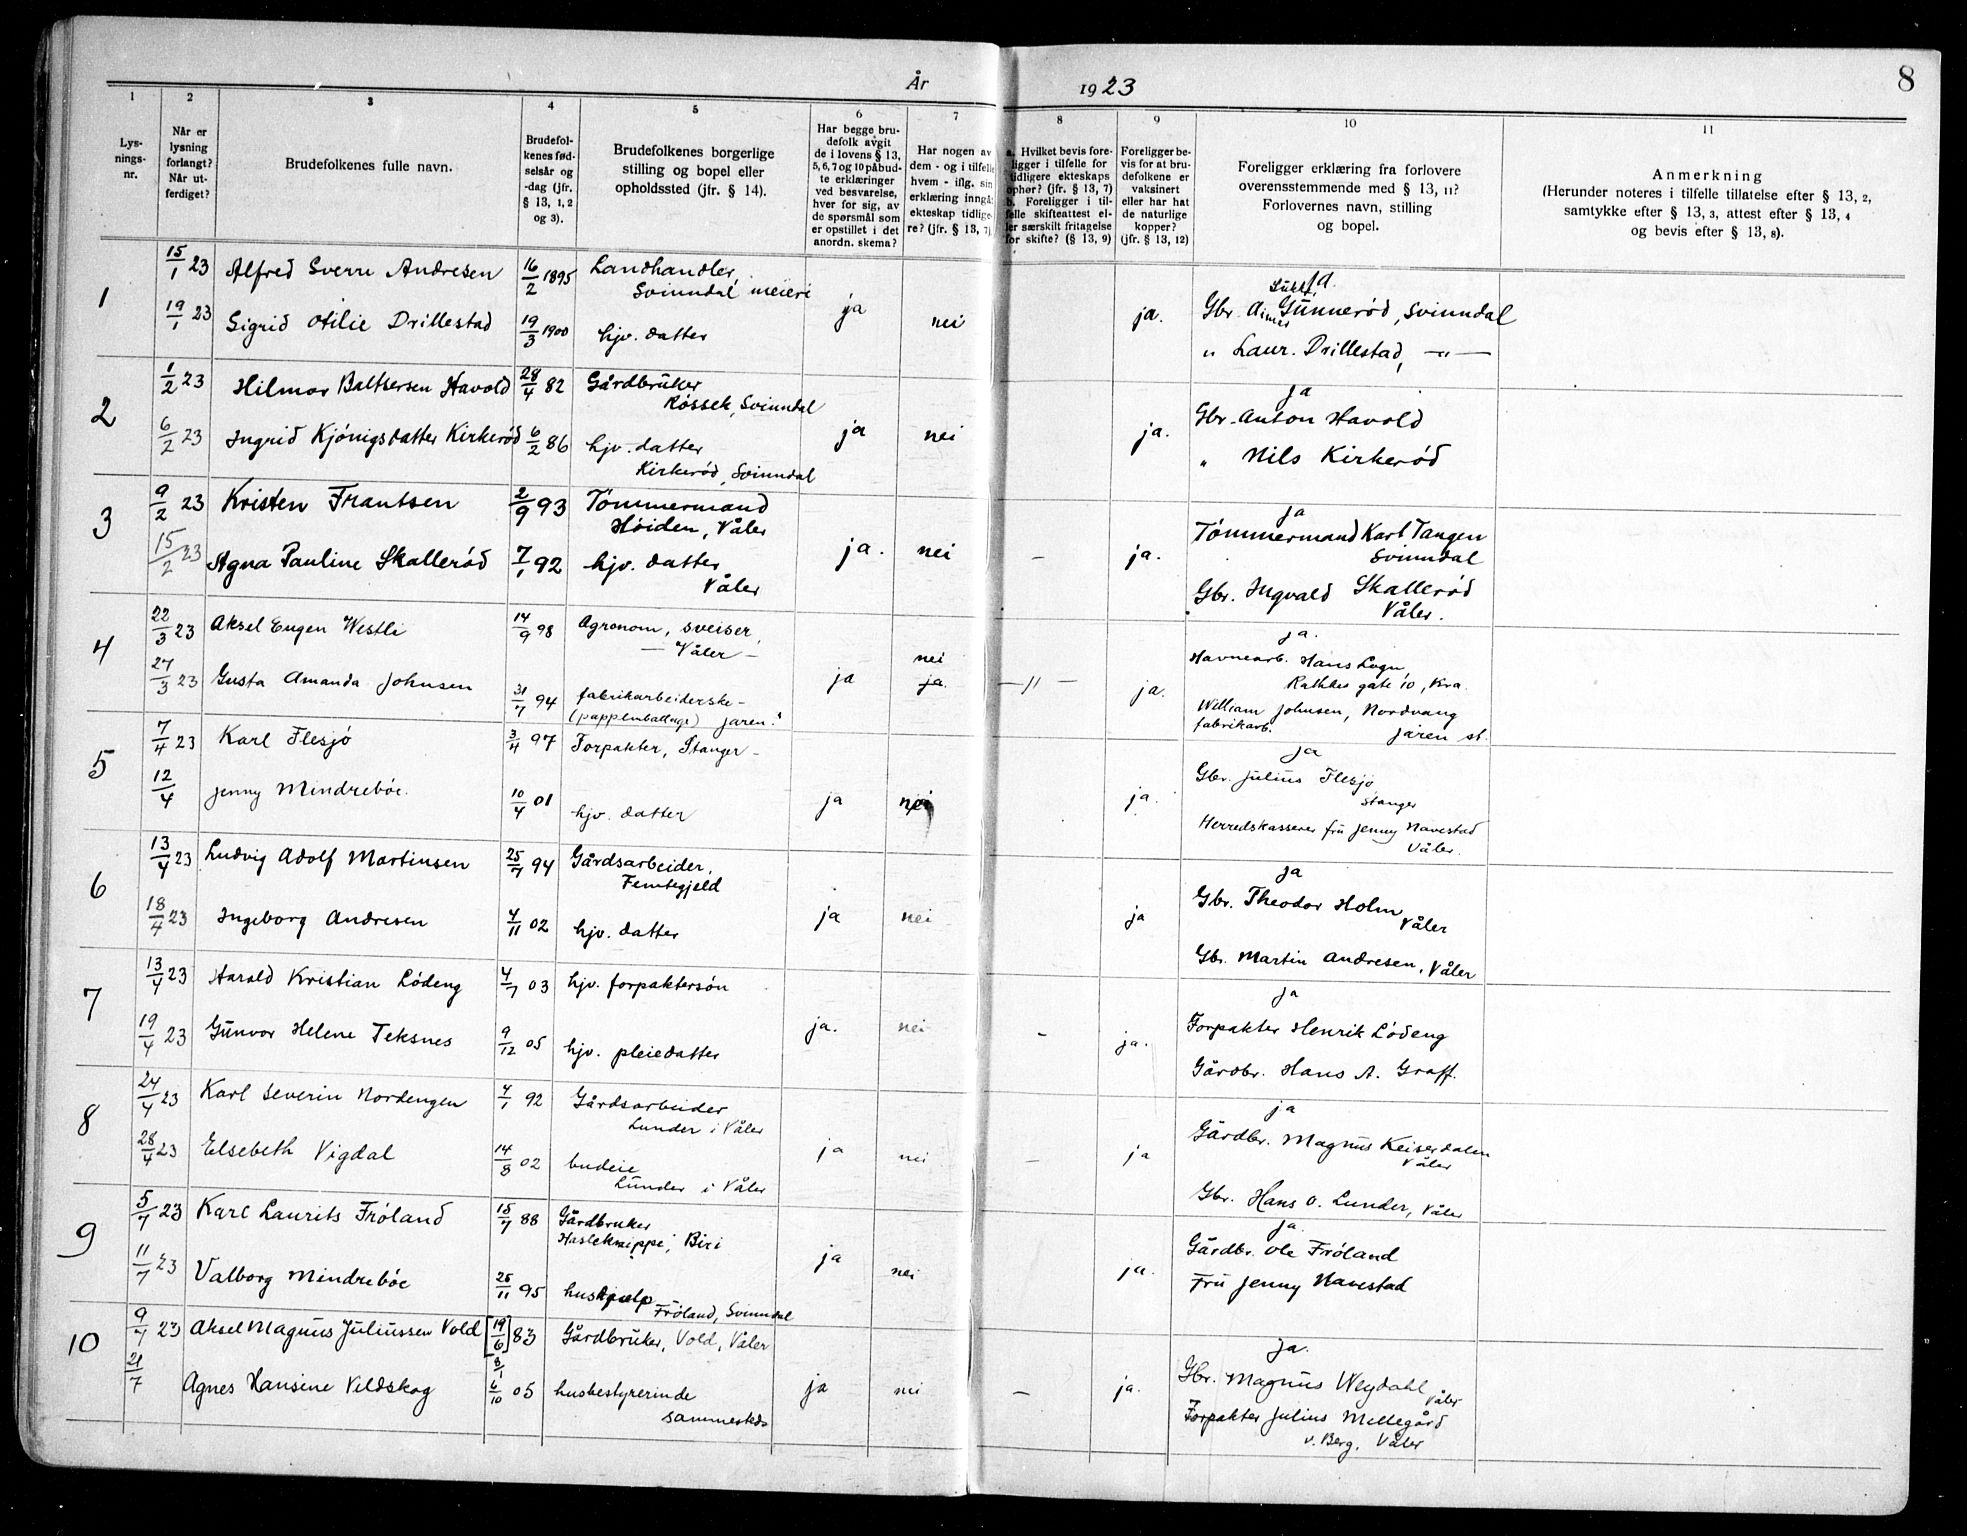 År 1923
8
1 2 3 4 5 6 7 8 9 10 11
Lys-
nings-
nr.
Når er
lysning
forlangt?
Når ut-
ferdiget?
Brudefolkenes fulle navn.
Brudefol-
kenes fød-
selsår og
-dag (jfr.
§ 13, 1, 2
og 3).
Brudefolkenes borgerlige
stilling og bopel eller
opholdssted (jfr. § 14).
Har begge bru-
defolk avgit
de i lovens § 13,
5, 6, 7 og 10 påbud-
te erklæringer
ved besvarelse,
hver for sig, av
de spørsmål som
er opstillet i det
anordn. skema?
Har nogen av
dem - og i tilfelle
hvem - iflg. sin
erklæring inngåt
ekteskap tidlige-
re? (jfr. § 13, 7)
a. Hvilket bevis fore-
ligger i tilfelle for
tidligere ekteskaps
ophør? (jfr. § 13, 7)
b. Foreligger i til-
felle skifteattest el-
ler særskilt fritagelse
for skifte? (§ 13, 9)
Foreligger be-
vis for at bru-
defolkene er
vaksinert
eller har hat
de naturlige
kopper?
(jfr. § 13, 12)
Foreligger erklæring fra forlovere
overensstemmende med § 13, 11?
Forlovernes navn, stilling
og bopel.
Anmerkning
(Herunder noteres i tilfelle tillatelse efter § 13, 2,
samtykke efter § 13, 3, attest efter § 13, 4
og bevis efter § 13, 8).
1
15/1 23 Alfred Sverre Andresen 16/2 1895 Landhandler,
Svinndal meieri
19/1 23 Sigrid Otilie Drillestad 19/3 1900 hjv. datter
ja nei ja.
Ja.
Gbr. Gunnerød, Svinndal
" Laur. Drillestad, —"—
2
1/2 23 Hilmar Baltsersen Havold 28/4 82 Gårdbruker
Røssek, Svinndal
6/2 23 Ingrid Kjønigsdatter Kirkerød 6/2 86 hjv. datter
Kirkerød, Svinndal
ja nei ja.
ja
Gbr. Anton Havold
" Nils Kirkerød
3
9/2 23 Kristen Frantsen 2/9 93 Tømmermand
Høiden, Våler
15/2 23 Agna Pauline Skallerød 7/1 92 hjv. datter
Våler
ja. nei – ja.
ja
Tømmermand Karl Tangen
Svinndal
Gbr. Ingvald Skallerød
Våler.
4
22/3 23 Aksel Eugen Westli 14/9 98 Agronom, sveiser,
— Våler —
27/3 23 Gusta Amanda Johnsen 31/7 94 fabrikarbeiderske-
(pappemballage) Jaren.
ja nei ja. —"— ja.
ja.
Havnearb. Hans
Rathkes gate 10, Kra.
William Johnsen, Nordvang
fabrikarb. Jaren st.
5
7/4 23 Karl Flesjø 3/4 97 Forpakter, Stanger –
12/4 Jenny Mindrebøe. 10/4 01 hjv. datter
ja nei ja.
ja
Gbr. Julius Flesjø
Stanger
Herredskasserer fru Jenny Navestad
Våler.
6
13/4 23 Ludvig Adolf Martinsen 25/7 94 Gårdsarbeider,
Femtegjeld
18/4 23 Ingeborg Andresen 4/11 02 hjv. datter
ja nei ja
ja
Gbr. Theodor Holm
Våler
Gbr. Martin Andresen, Våler
7
13/4 23 Harald Kristian Lødeng 4/7 03 hjv. forpaktersøn
19/4 23 Gunvor Helene Teksnes 9/12 05 hjv. pleiedatter
ja. nei – ja.
ja
Forpakter Henrik Lødeng
Gårdbr. Hans A. Graff.
8
24/4 23 Karl Severin Nordengen 4/1 92 Gårdsarbeider
Lunder i Våler
28/4 23 Elsebeth Vigdal 14/8 02 budeie
Lunder i Våler
ja nei – ja
ja
Gårdbr. Magnus Keiserdalen
Våler
Gbr. Hans O. Lunder, Våler
9
5/7 23 Karl Laurits Frøland 15/7 88 Gårdbruker
Hasleknippe, Biri
11/7 23 Valborg Mindrebøe 26/11 95 hushjælp
Frøland, Svinndal
ja nei ja.
ja.
Gårdbr. Ole Frøland
Fru Jenny Navestad
10
9/7 23 Aksel Magnus Juliussen Vold [19/6] 83 Gårdbruker, Vold, Våler
8/1
21/7 Agnes Hansine Veldskog 6/10 05 husbestyrerinde
sammesteds
ja nei – ja.
ja.
Gbr. Magnus Weydahl
Våler
Forpakter Julius Mellegård
v. Berg, Våler